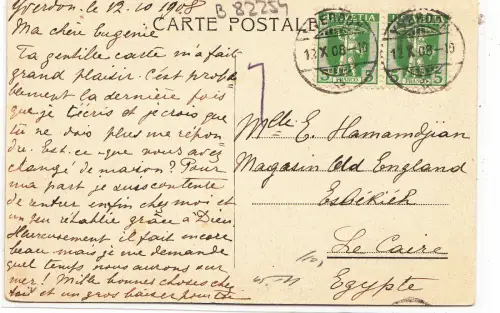 Yverdon, le 12.10 1908
B 82254
CARTE POSTALE
Ma chère Eugénie
Ta gentille carte m'a fait
grand plaisir. C'est proba-
blement la dernière fois
que je t'écris et je crois que
tu ne dois plus me répon-
dre. Est-ce-que vous avez
changé de maison? Pour
ma part je suis contente
de rentrer enfin chez moi et
un peu rétablie grâce à Dieu
Heureusement il fait encore
beau mais je me demande
quel temps nous aurons sur
mer! Mille bonnes choses chez
toi et un gros baiser pour toi
HELVETIA HELVETIA
12 X 08-10 12 X 08-10
5 FRANCO 5 5 FRANCO 5
Mlle E. Hamamdjian
Magasin Old England
Esbékiéh
Le Caire
Egypte